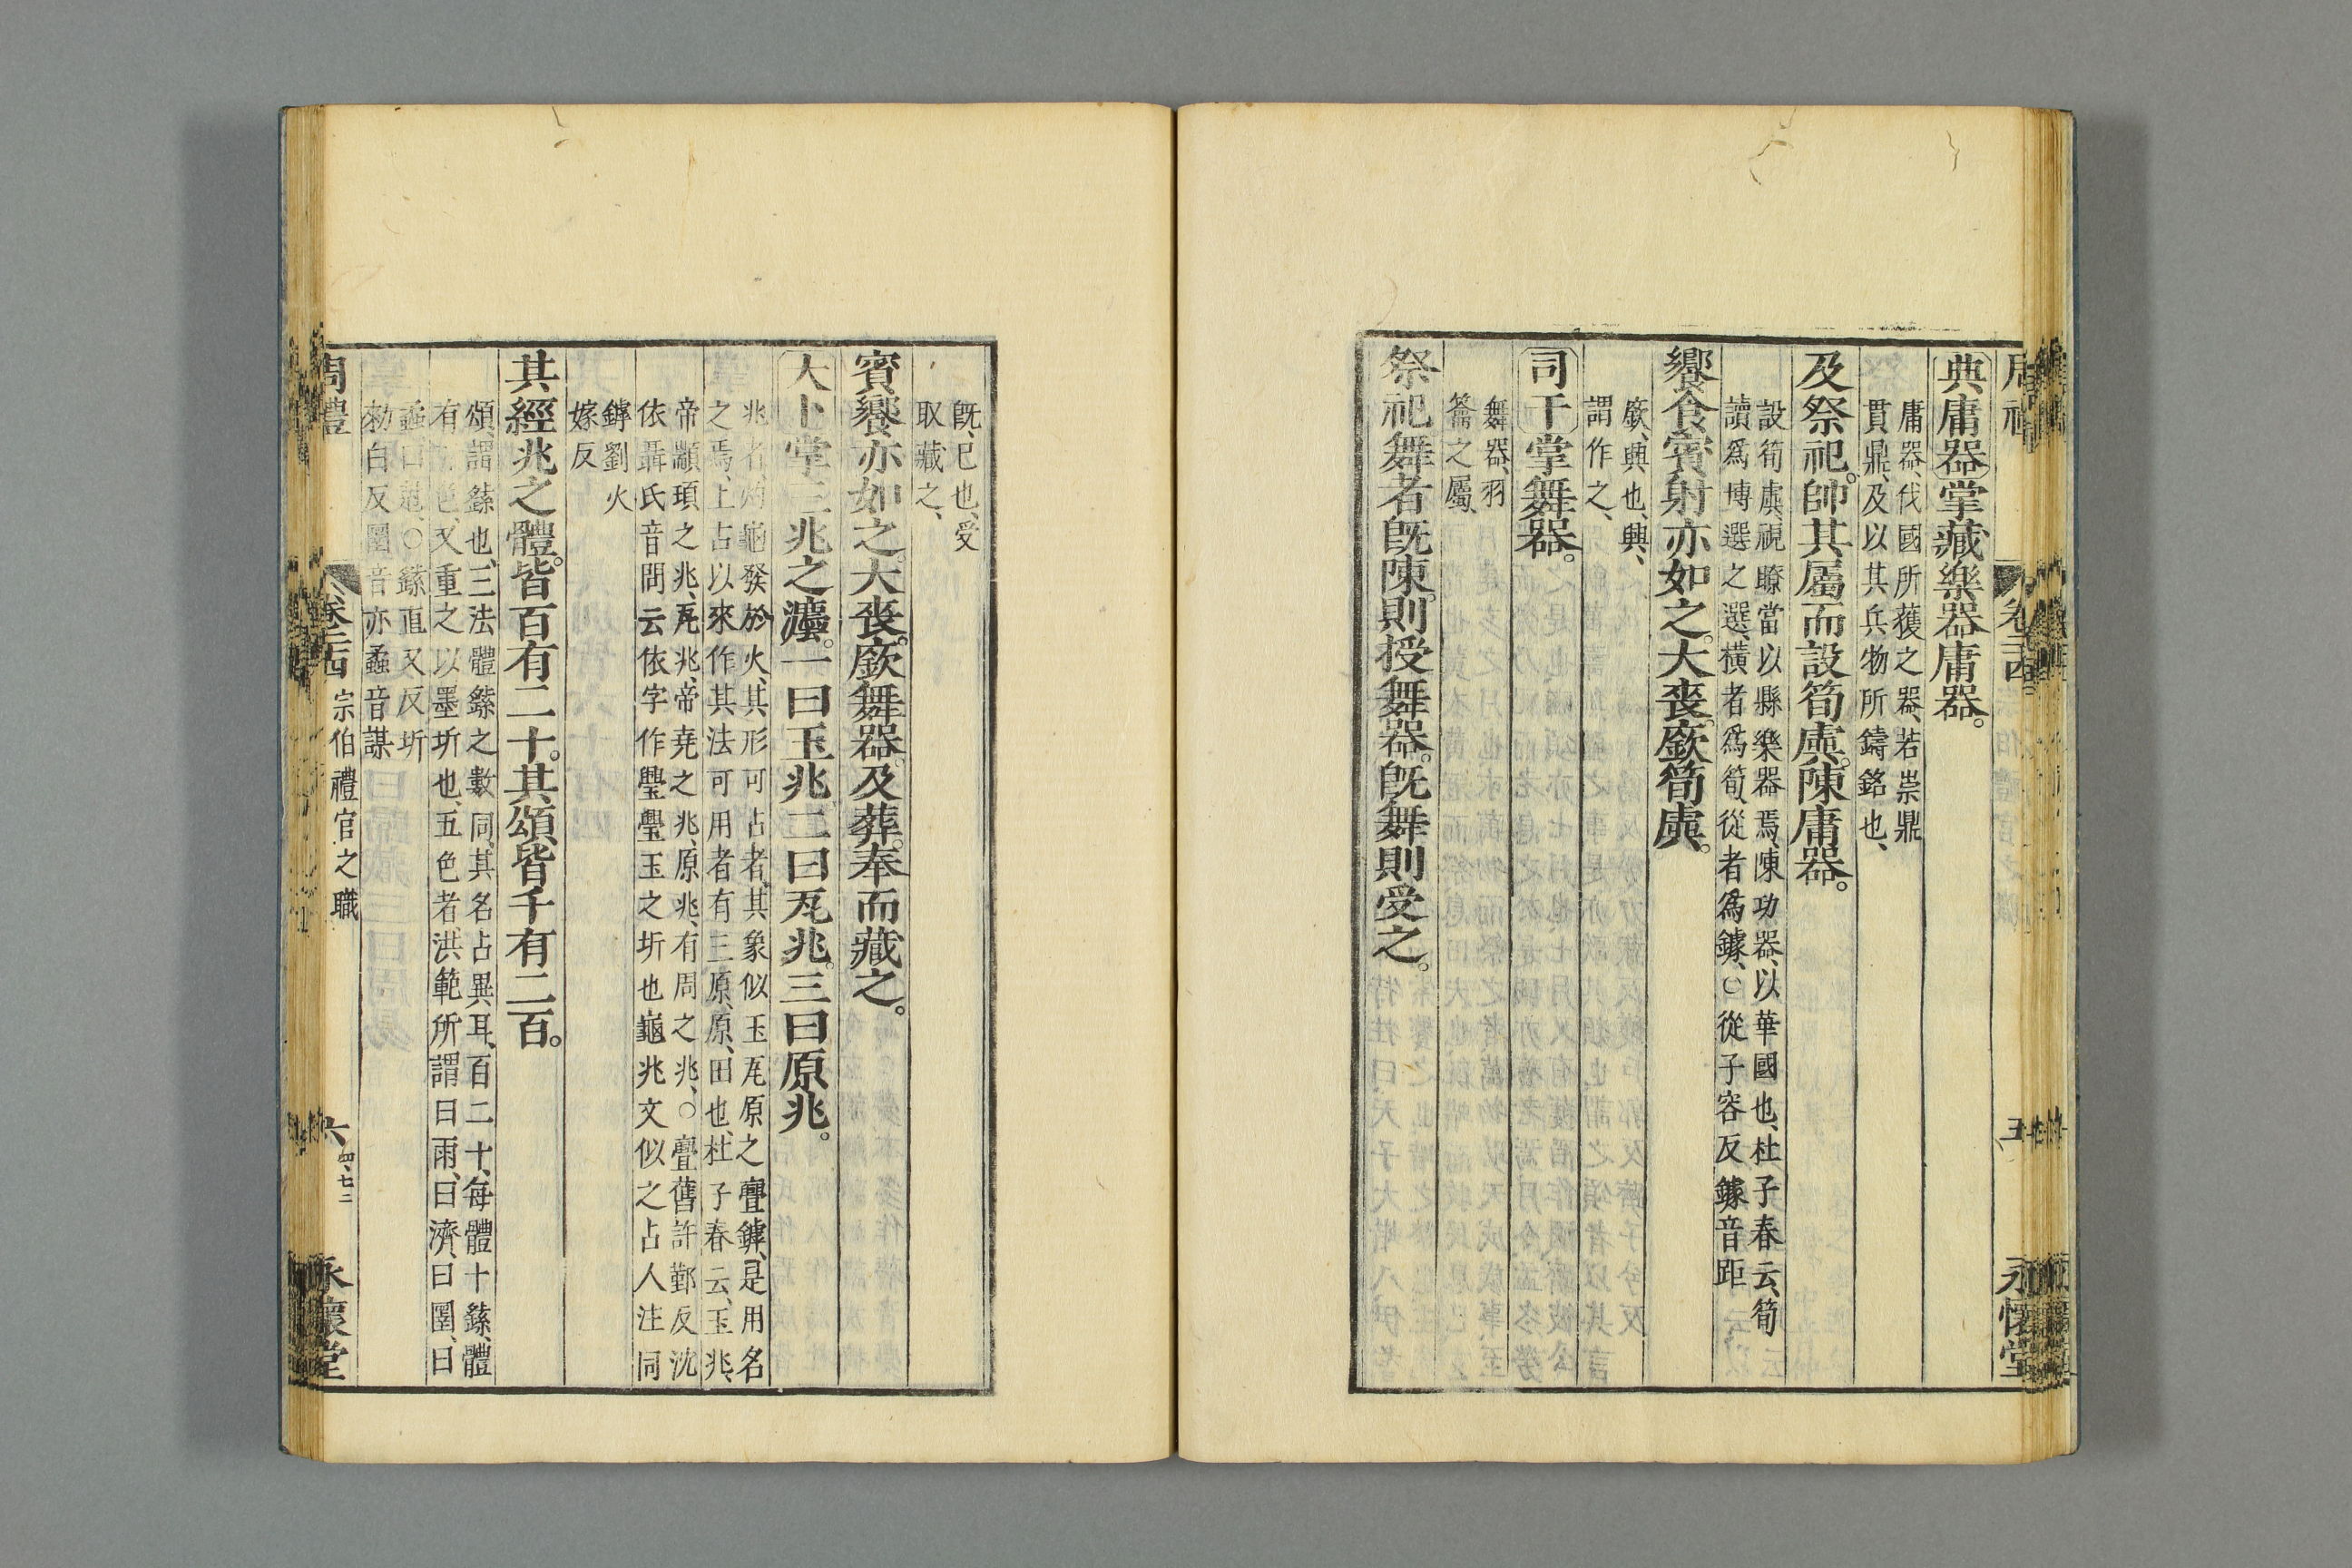 典庸器掌藏樂器庸器。
庸器、伐國所獲之器、若崇鼎
貫鼎、及以其兵物所鑄銘也、
及祭祀。帥其屬而設筍虡。陳庸器。
設筍虡、視瞭當以縣樂器焉、陳功器、以華國也、杜子春云、筍
讀爲博選之選、橫者爲筍、從者爲鐻、○從子容反鐻音距
饗食賓射亦如之。大喪。廞筍虡。
廞、興也、興、
謂作之、
司干掌舞器。
舞器、羽
籥之屬、
祭祀舞者旣陳。則授舞器。旣舞則受之。
卷二十四
五
永懷堂
旣、已也、受
取藏之、
賓饗亦如之。大喪。廞舞器。及葬。奉而藏之。
大卜掌三兆之灋。一曰玉兆二曰瓦兆。三曰原兆。
兆者、灼龜發於火、其形可占者、其象似玉瓦原之璺鏬、是用名
之焉、上占以來作其法可用者有三原、原、田也、杜子春云、玉兆、
帝顓頊之兆、瓦兆、帝堯之兆、原兆、有周之兆、○璺舊許鄞反沈
依聶氏音問云依字作璺璺玉之坼也龜兆文似之占人注同
鏬劉火
嫁反
其經兆之體。皆百有二十。其頌皆千有二百。
頌、謂繇也、三法體繇之數同、其名占異耳、百二十、每體十繇、體
有五色、又重之以墨坼也、五色者、洪範所謂曰雨、曰濟、曰圛、曰
蟊、曰尅、○繇直又反坼
勑白反圛音亦蟊音謀
周禮
卷二十四
宗伯禮官之職
六
四、七二
永懷堂